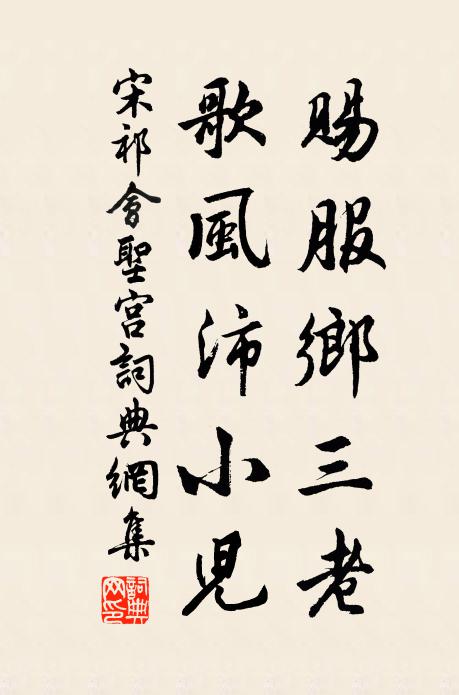 賜服鄉三老
歌風沛小兒
宋祁會聖宮詞典網集
詞典網印